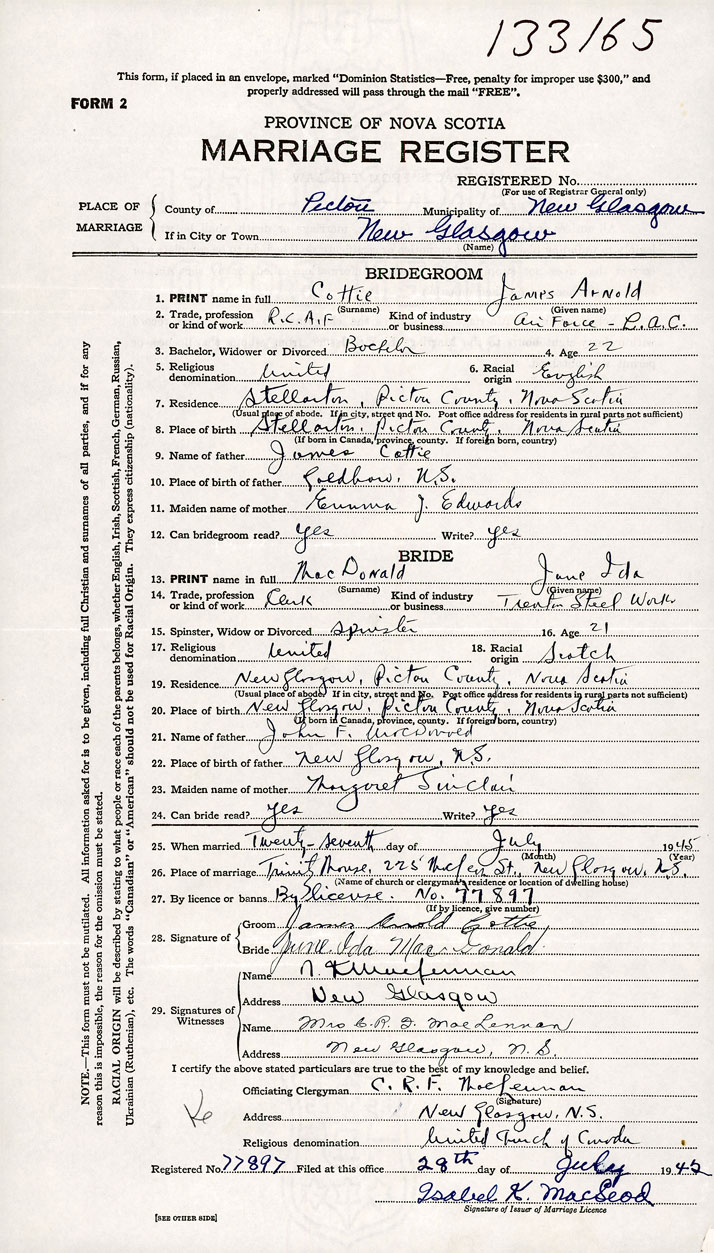 133165
This form, if placed in an envelope, marked "Dominion Statistics—Free, penalty for improper use $300," and
properly addressed will pass through the mail "FREE".
FORM 2
PROVINCE OF NOVA SCOTIA
MARRIAGE REGISTER
REGISTERED No.
(For use of Registrar General only)
PLACE OF MARRIAGE
County of Pictou Municipality of New Glasgow
If in City or Town New Glasgow
(Name)
BRIDEGROOM
1. PRINT name in full Cottie James Arnold
(Surname) (Given name)
2. Trade, profession or kind of work R.C.A.F Kind of industry or business Air Force - L.A.C.
3. Bachelor, Widower or Divorced Bachelor 4. Age 22
5. Religious denomination United 6. Racial origin English
7. Residence Stellarton, Pictou County, Nova Scotia
(Usual place of abode. If in city, street and No. Post office address for residents in rural parts not sufficient)
8. Place of birth Stellarton, Pictou County, Nova Scotia
(If born in Canada, province, county. If foreign born, country)
9. Name of father James Cottie
10. Place of birth of father N.S.
11. Maiden name of mother Emma J. Edwards
12. Can bridegroom read? yes Write? yes
BRIDE
13. PRINT name in full MacDonald June Ida
(Surname) (Given name)
14. Trade, profession or kind of work Clerk Kind of industry or business Trenton Steel Works
15. Spinster, Widow or Divorced Spinster 16. Age 21
17. Religious denomination United 18. Racial origin Scotch
19. Residence New Glasgow, Pictou County, Nova Scotia
(Usual place of abode. If in city, street and No. Post office address for residents in rural parts not sufficient)
20. Place of birth New Glasgow, Pictou County, Nova Scotia
(If born in Canada, province, county. If foreign born, country)
21. Name of father John F. MacDonald
22. Place of birth of father New Glasgow, N.S.
23. Maiden name of mother Margaret Sinclair
24. Can bride read? yes Write? yes
25. When married Twenty-seventh day of July 1945
(Month) (Year)
26. Place of marriage House, 225 St., New Glasgow, N.S.
(Name of church or clergyman's residence or location of dwelling house)
27. By licence or banns By license. No. 77897
(If by licence, give number)
28. Signature of
Groom James Arnold Cottie
Bride June Ida MacDonald
29. Signatures of Witnesses
Name MacLennan
Address New Glasgow
Name Mrs C.R.F. MacLennan
Address New Glasgow, N.S.
I certify the above stated particulars are true to the best of my knowledge and belief.
Officiating Clergyman C. R. F. MacLennan
(Signature)
Address New Glasgow, N.S.
Religious denomination United Church of Canada
Registered No. 77897 Filed at this office 28th day of July 1945
Isabel K. MacLeod
Signature of Issuer of Marriage Licence
[SEE OTHER SIDE]
NOTE.—This form must not be mutilated. All information asked for is to be given, including full Christian and surnames of all parties, and if for any
reason this is impossible, the reason for the omission must be stated.
RACIAL ORIGIN will be described by stating to what people or race each of the parents belongs, whether English, Irish, Scottish, French, German, Russian,
Ukrainian (Ruthenian), etc. The words "Canadian" or "American" should not be used for Racial Origin. They express citizenship (nationality).